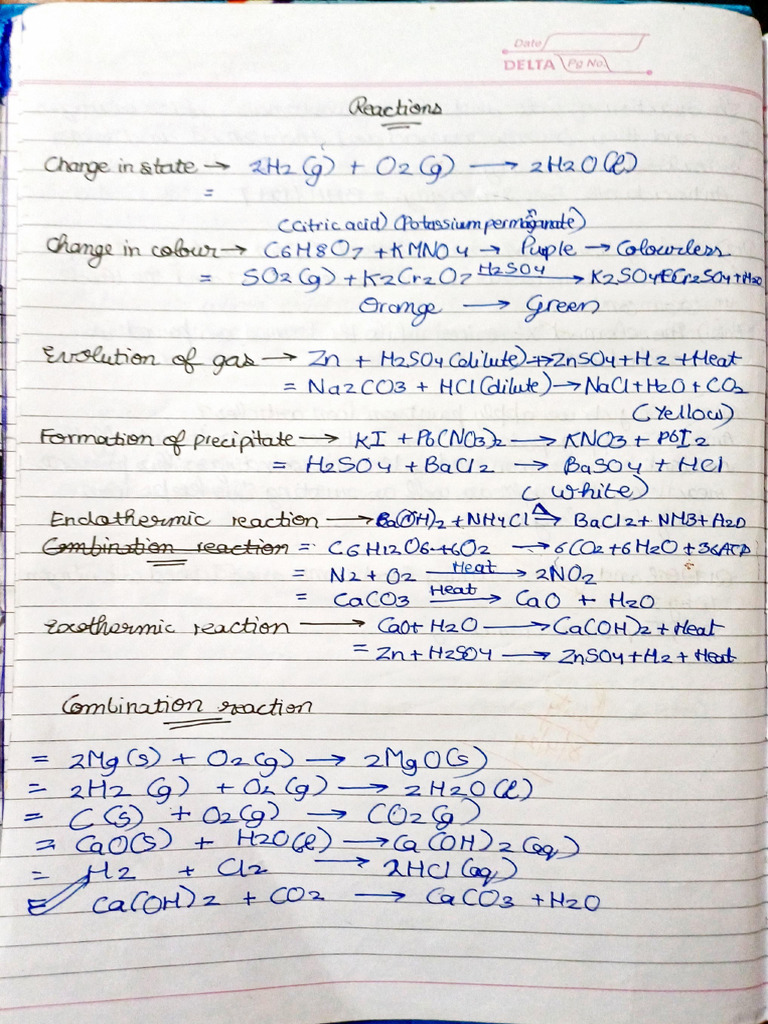 Date
DELTA Pg No.
Reactions
Change in state → 2H2(g) + O2(g) → 2H2O(l)
=
(Citric acid) (Potassium permanganate)
Change in colour → C6H8O7 + KMNO4 → Puple → Colourless
= SO2(g) + K2Cr2O7 H2SO4 → K2SO4 Cr2SO4 + H2O
Orange → Green
Evolution of gas → Zn + H2SO4(dilute) → ZnSO4 + H2 + Heat
= Na2CO3 + HCl(dilute) → NaCl + H2O + CO2
(Yellow)
Formation of precipitate → KI + Pb(NO3)2 → KNO3 + PbI2
= H2SO4 + BaCl2 → BaSO4 + HCl
(White)
Endothermic reaction → Ba(OH)2 + NH4Cl Δ→ BaCl2 + NH3 + H2O
Combination reaction = C6H12O6 + 6O2 → 6CO2 + 6H2O + 36ATP
= N2 + O2 Heat → 2NO2
= CaCO3 Heat → CaO + H2O
Exothermic reaction → CaO + H2O → Ca(OH)2 + Heat
= Zn + H2SO4 → ZnSO4 + H2 + Heat
Combination reaction
= 2Mg(s) + O2(g) → 2MgO(s)
= 2H2(g) + O2(g) → 2H2O(l)
= C(s) + O2(g) → CO2(g)
= CaO(s) + H2O(l) → Ca(OH)2(aq)
= H2 + Cl2 → 2HCl(aq)
= Ca(OH)2 + CO2 → CaCO3 + H2O